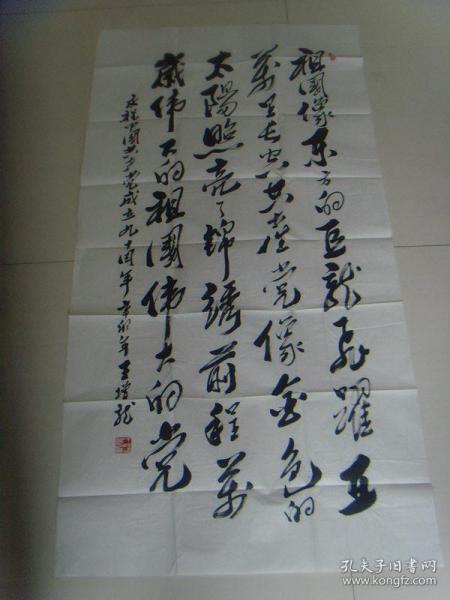 祖國像东方的巨龍飞躍在
萬里长空共产党像金色的
太陽照亮了錦綉前程萬
歲伟大的祖國伟大的党
庆祝中国共产党成立九十周年辛卯年
孔夫子旧书网
www.kongfz.com